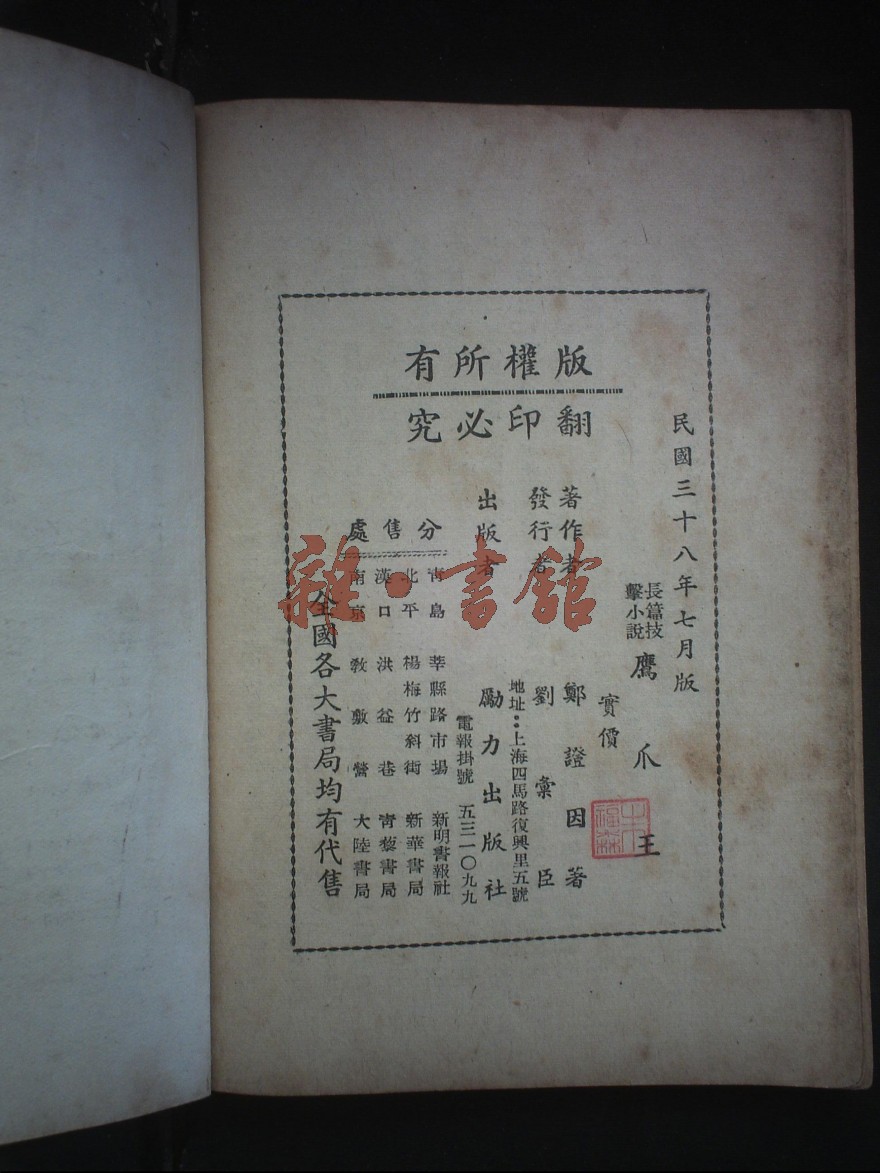 版權所有
翻印必究
民國三十八年七月版
長篇技擊小說
鷹爪王
實價
著作者 鄭證因著
發行者 劉彙臣
地址：上海四馬路復興里五號
出版者 勵力出版社
電報掛號 五三一〇九九
分售處
青島 莘縣路市場 新明書報社
北平 楊梅竹斜街 新華書局
漢口 洪益巷 青藜書局
南京 教敷營 大陸書局
全國各大書局均有代售
雜·書館